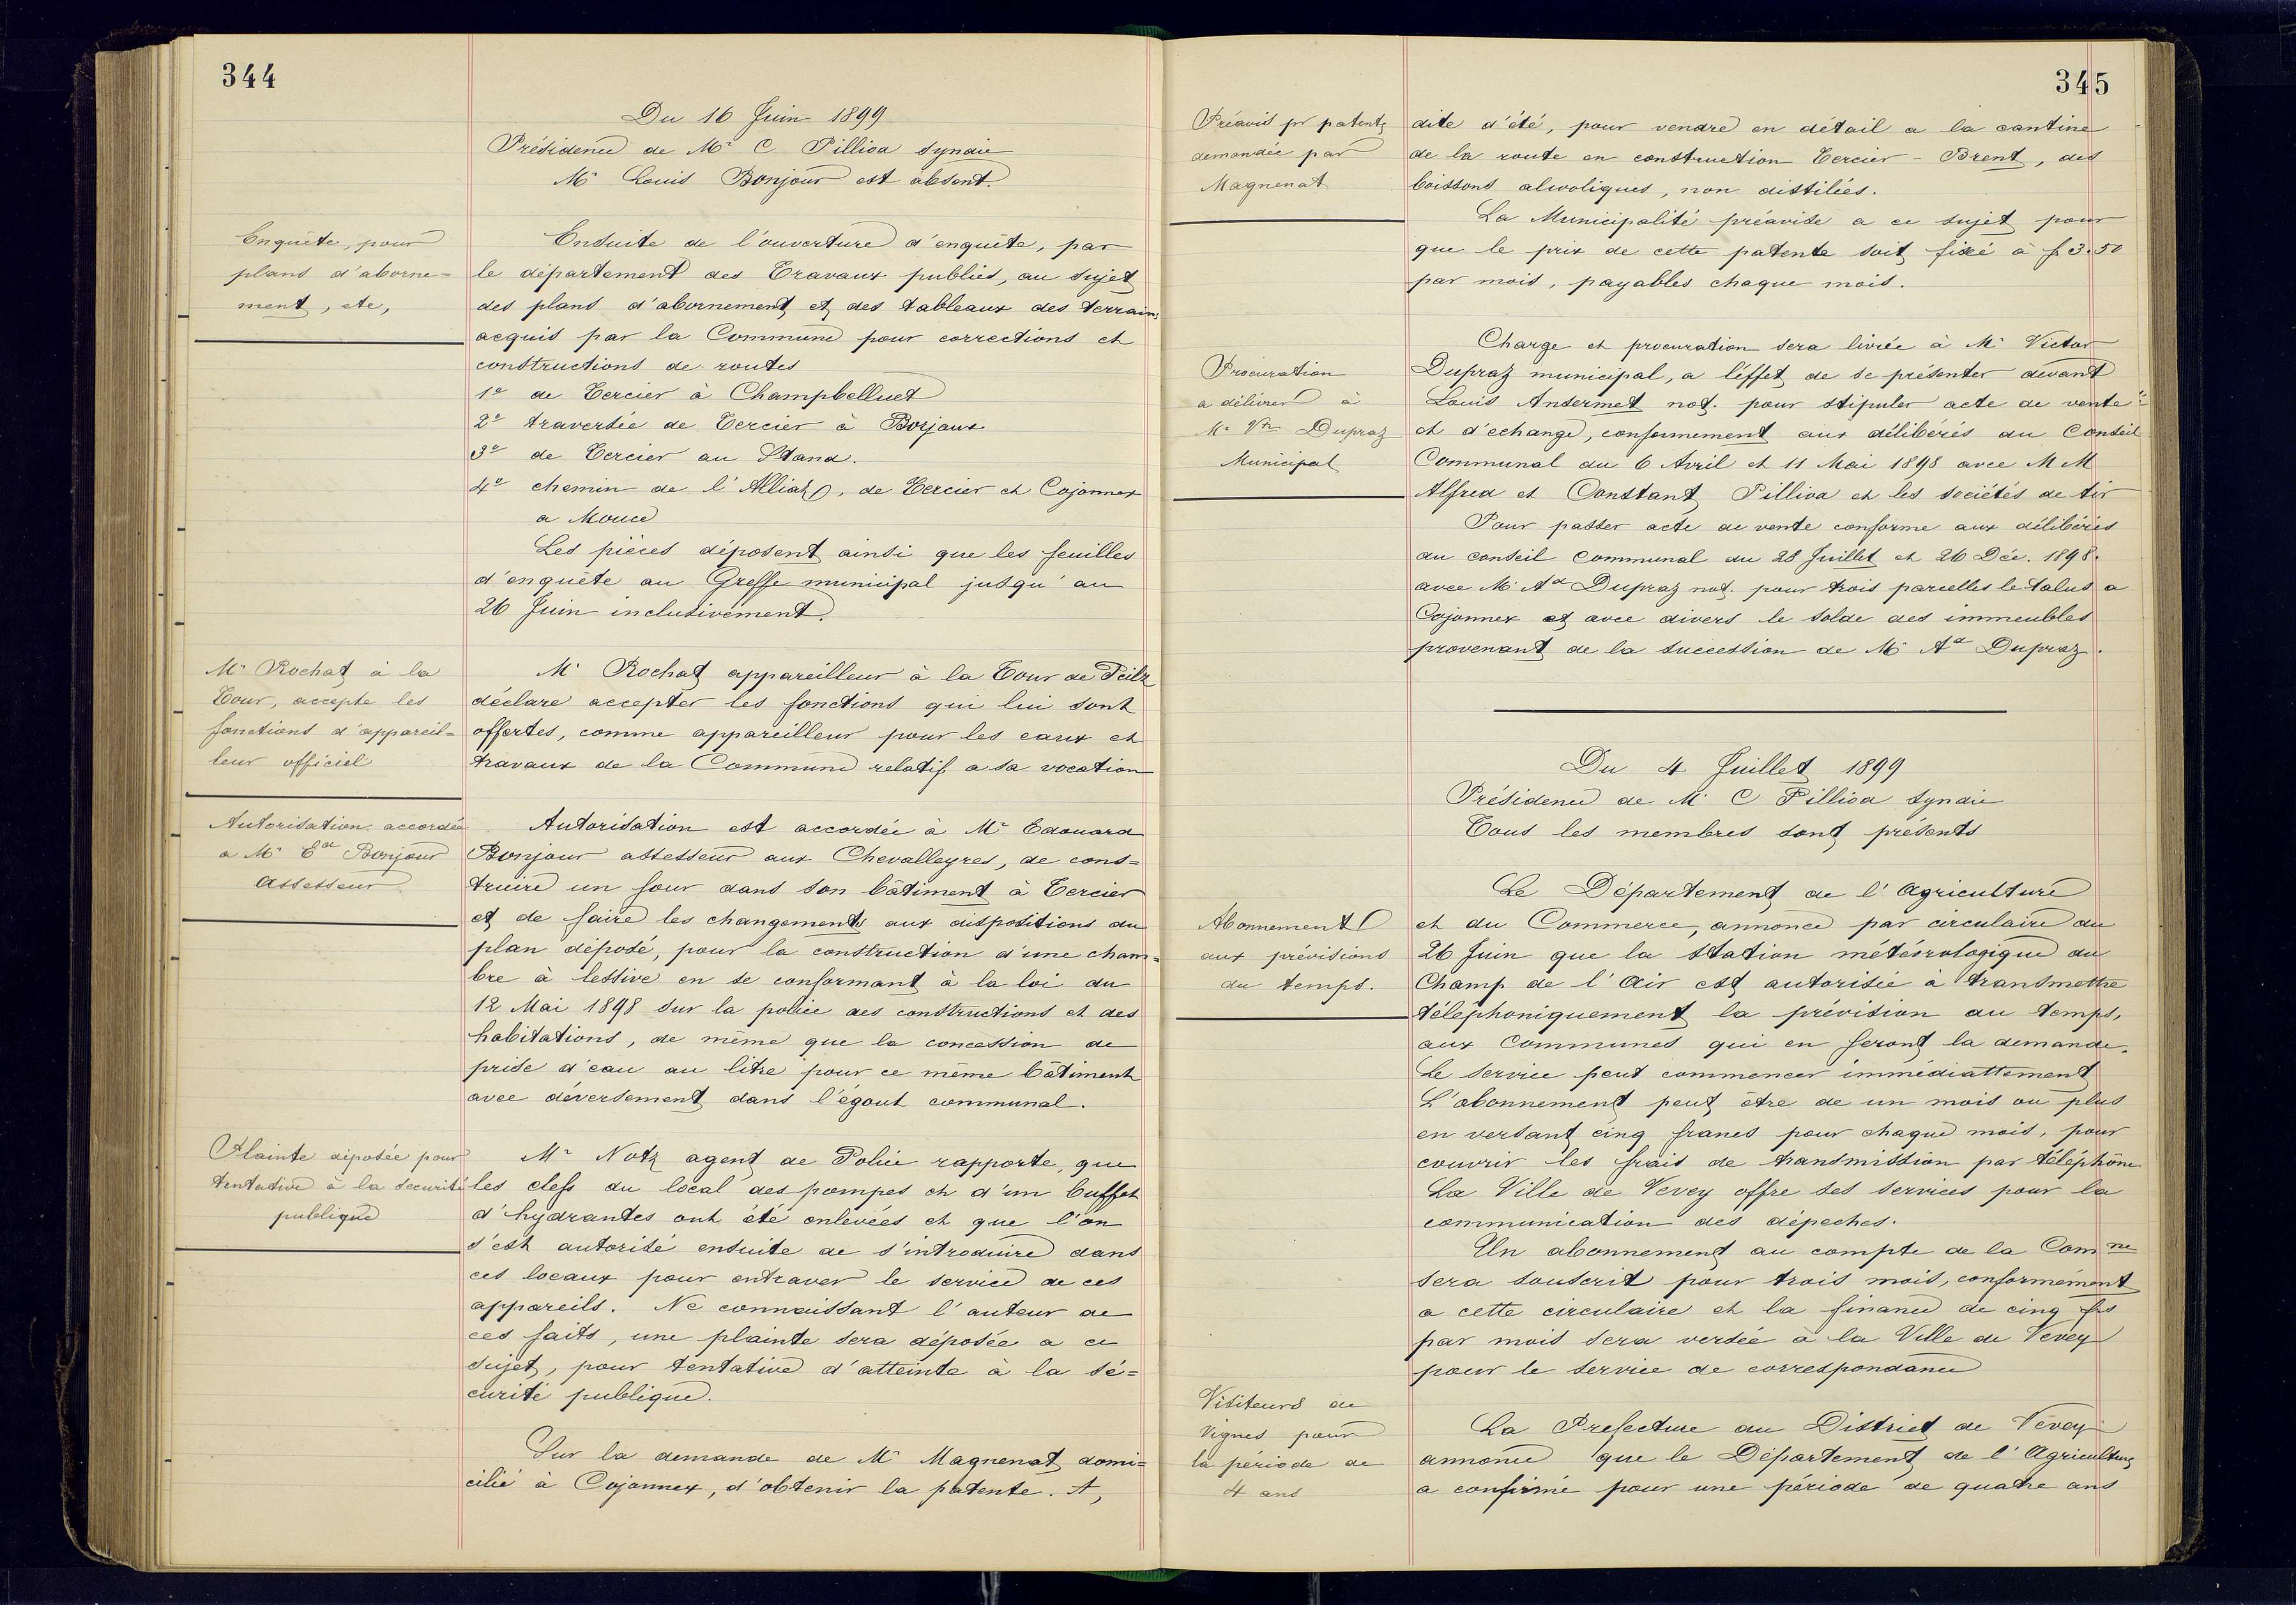 344
Du 16 Juin 1899
Présidence de Mr C Pilliod Syndic
Mr Louis Bonjour est absent.
Enquête, pour
plans d'aborne=
ment, etc,
Ensuite de l'ouverture d'enquête, par
le département des Travaux publics, au sujet
des plans d'abornement et des tableaux des terrains
acquis par la Commune pour corrections et
constructions de routes
1o de Tercier à Champbelluet
2o traversée de Tercier à Borjaux
3o de Tercier au Stand.
4o chemin de l'Alliaz, de Tercier et Cojonnex
a Mouce
Les pièces déposent ainsi que les feuilles
d'enquête au Greffe municipal jusqu'au
26 Juin inclusivement.
Mr Rochat à la
Tour, accepte les
fonctions d'appareil=
leur officiel
Mr Rochat appareilleur à la Tour de Peilz
déclare accepter les fonctions qui lui sont
offertes, comme appareilleur pour les eaux et
travaux de la Commune relatifs a sa vocation
Autorisation accordée
a Mr Ed Bonjour
Assesseur
Autorisation est accordée à Mr Edouard
Bonjour assesseur aux Chevalleyres, de cons=
truire un four dans son bâtiment à Tercier
et de faire les changements aux dispositions du
plan déposé, pour la construction d'une cham=
bre à lessive en se conformant à la loi du
12 Mai 1898 sur la police des constructions et des
habitations, de même que la concession de
prise d'eau au litre pour ce même bâtiment
avec déversement dans l'égout communal.
Plainte déposée pour
tentative à la securité
publique
Mr Notz agent de Police rapporte, que
les clefs du local des pompes et d'un buffet
d'hydrantes ont été enlevées et que l'on
s'est autorisé ensuite de s'introduire dans
ces locaux pour entraver le service de ces
appareils. Ne connaissant l'auteur de
ces faits, une plainte sera déposée a ce
sujet, pour tentative d'atteinte à la sé=
curité publique.
Sur la demande de Mr Magnenat domi=
cilié à Cojonnex, d'obtenir la patente. A,
345
Préavis pr patente
demandée par
Magnenat
dite d'été, pour vendre en détail a la cantine
de la route en construction Tercier - Brent, des
boissons alcooliques, non distilées.
La Municipalité préavise a ce sujet pour
que le prix de cette patente soit fixé à f 3.50
par mois, payables chaque mois.
Procuration
a délivrer à
Mr Vr Dupraz
Municipal
Charge et procuration sera livrée à Mr Victor
Dupraz municipal, a l'effet de se présenter devant
Louis Ansermet not. pour stipuler acte de vente
et d'echange, conformement aux délibérés du Conseil
Communal du 6 Avril et 11 Mai 1898 avec MM
Alfred et Constant Pilliod et les sociétés de tir
Pour passer acte de vente conforme aux délibérés
du conseil Communal du 28 Juillet et 26 Déc. 1898.
avec Mr Ad Dupraz not. pour trois parcelles le talus a
Cojonnex et avec divers le solde des immeubles
provenant de la succession de Mr Ad Dupraz.
Du 4 Juillet 1899
Présidence de Mr C Pilliod Syndic
Tous les membres sont présents
Abonnement
aux prévisions
du temps.
Le Département de l'Agriculture
et du Commerce, annonce par circulaire du
26 Juin que la station météorologique du
Champ de l'Air est autorisée à transmettre
téléphoniquement la prévision du temps,
aux Communes qui en feront la demande.
Le service peut commencer immédiattement
L'abonnement peut être de un mois ou plus
en versant cinq francs pour chaque mois, pour
couvrir les frais de transmission par téléphone
La Ville de Vevey offre ses services pour la
communication des dépeches.
Un abonnement au compte de la Comne
sera souscrit pour trois mois, conformément
a cette circulaire et la finance de cinq frs
par mois sera versée à la Ville de Vevey
pour le service de correspondance
Visiteurs de
Vignes pour
la période de
4 ans
La Prefecture du District de Vevey
annonce que le Département de l'Agriculture
a confirmé pour une période de quatre ans